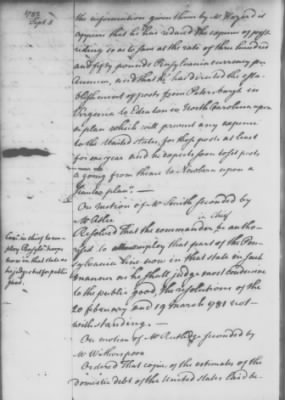 1782
Sept. 3
the information given them by Mr Hazard it
appears that he has reduced the expence of post
riding so as to save at the rate of three hundred
and fifty pounds Pensylvania currency per
Annum, and that he has directed the esta-
blishment of posts from Petersburgh in
Virginia to Edenton in North Carolina upon
a plan which will prevent any expence
to the United States, for those posts at least
for one year and he expects soon to set posts
a going from thence to Newbern upon a
similar plan".—
On motion of Mr Smith seconded by
Mr
Com in chief to em-
ploy Pensylva. troops
now in that state as
he judges best for public
good.
Resolved that the commander in chief be autho-
rised to employ that part of the Pen-
sylvania line now in that state in such
manner as he shall judge most conducive
to the public good, the resolutions of the
20 february and 19 march 1781 not-
withstanding.—
On motion of Mr Rutledge seconded by
Mr Witherspoon
Ordered That copies of the estimates of the
domestic debt of the United States laid be-